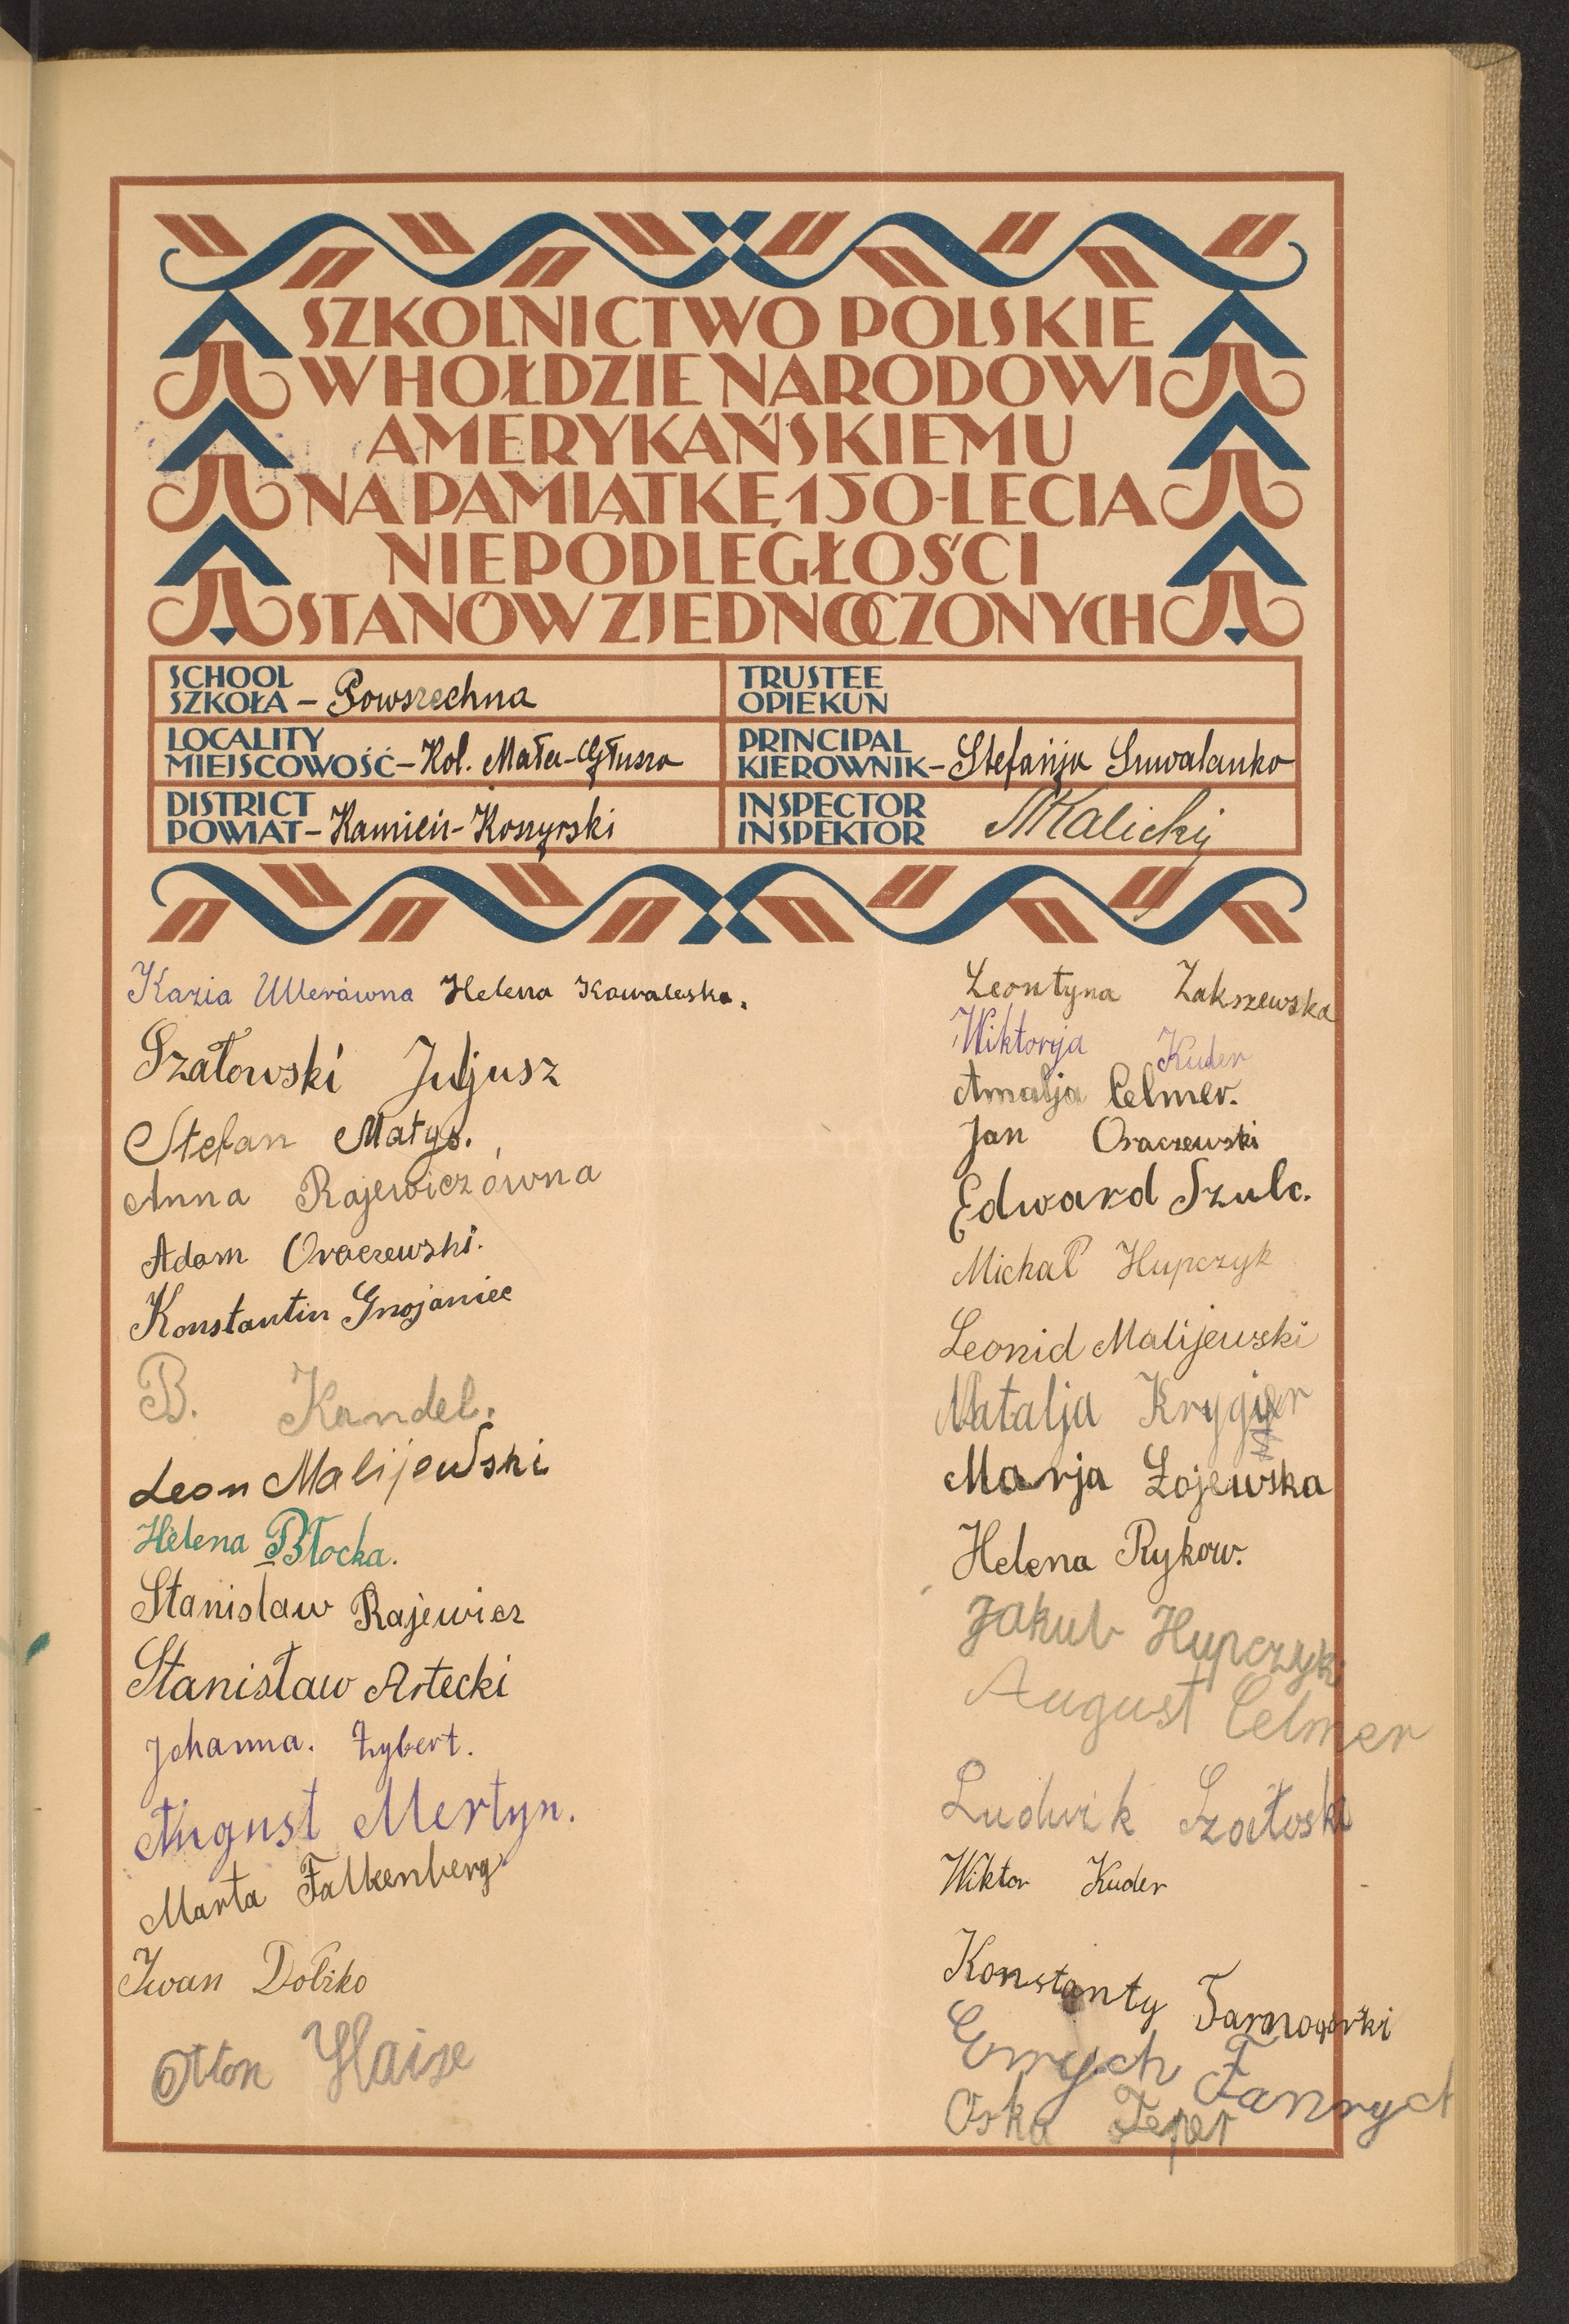 SZKOLNICTWO POLSKIE
W HOŁDZIE NARODOWI
AMERYKAŃSKIEMU
NA PAMIĄTKĘ 150-LECIA
NIEPODLEGŁOŚCI
STANÓW ZJEDNOCZONYCH
SCHOOL
SZKOŁA – Powszechna
TRUSTEE
OPIEKUN
LOCALITY
MIEJSCOWOŚĆ – Kol. Mała-Głusza
PRINCIPAL
KIEROWNIK – Stefanja Suwalanko
DISTRICT
POWIAT – Kamień-Koszyrski
INSPECTOR
INSPEKTOR Malicki
Kazia Ulleráwna Helena Kowaleska.
Szatowski Juljusz
Stefan Matys.
Anna Rajewiczówna
Adam Oraczewski.
Konstantin Gnojaniec
B. Kandel.
Leon Malijewski
Helena Błocka.
Stanislaw Rajewicz
Stanisław Artecki
Johanna. Zybert.
August Mertyn.
Marta Falkenberg
Iwan Dobżko
Otton Haize
Leontyna Zakszewska
Wiktorja Kuder
Amalja Celmer.
Jan Oraczewski
Edward Szulc.
Michał Hupczyk
Leonid Malijewski
Natalja Krygier
Marja Łojewska
Helena Rykow.
Jakub Hupczyk
August Celmer
Ludwik Szatoski
Wiktor Kuder
Konstanty Tarnogórski
Emrych Fanrych
Oska Feper